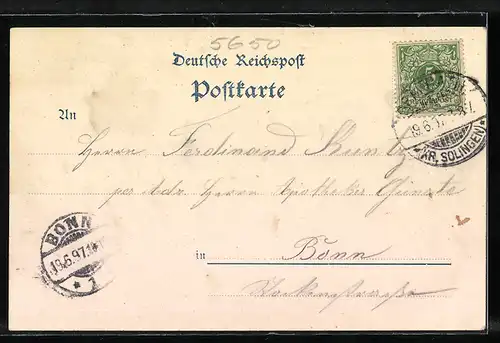 5650
Deutsche Reichspost
Postkarte
An
Herrn Ferdinand
per Adr Herrn Apotheker
in Bonn
19.6.97.
KR. SOLINGEN
BONN
19.6.97.
* 1